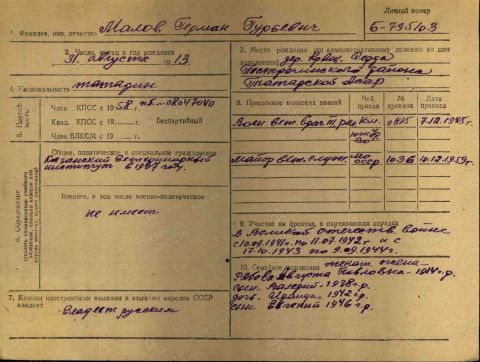 Личный номер
Б-795103
1. Фамилия, имя, отчество Малов Герман Гурьевич
2. Число, месяц и год рождения
31. августа 1913.
3. Место рождения (по административному делению ко дню
заполнения) дер. Серда
Пестречинского района
Татарской АССР
4. Национальность татарин
5. Партийность
Член КПСС с 1958. п.б. №08047040
Канд. КПСС с 19 Беспартийный
Член ВЛКСМ с 19
8. Присвоение воинских званий
Чей приказ № приказа Дата приказа
Воен вет. врач III ранга 0415 7.12.1945г.
Майор вет. служ. МО СССР 1036 10.12.1959г.
6. Образование
Общее, политическое и специальное гражданское
Казанский Ветеринарный
институт в 1937 году.
Военное, в том числе военно-политическое
не имеет
9. Участие на фронтах, в партизанских отрядах
в Великой отечеств. войне
с 10.09.1941г. по 11.07.1942г. и с
17.10.1943 по 9.09.1944г.
10. Семейное положение женат. жена-
Августа Павловна-1914г.р.
сын Валерий-1938г.р.
дочь Ираида-1942г.р.
сын Евгений-1946г.р.
7. Какими иностранными языками и языками народов СССР
владеет
владеет русским